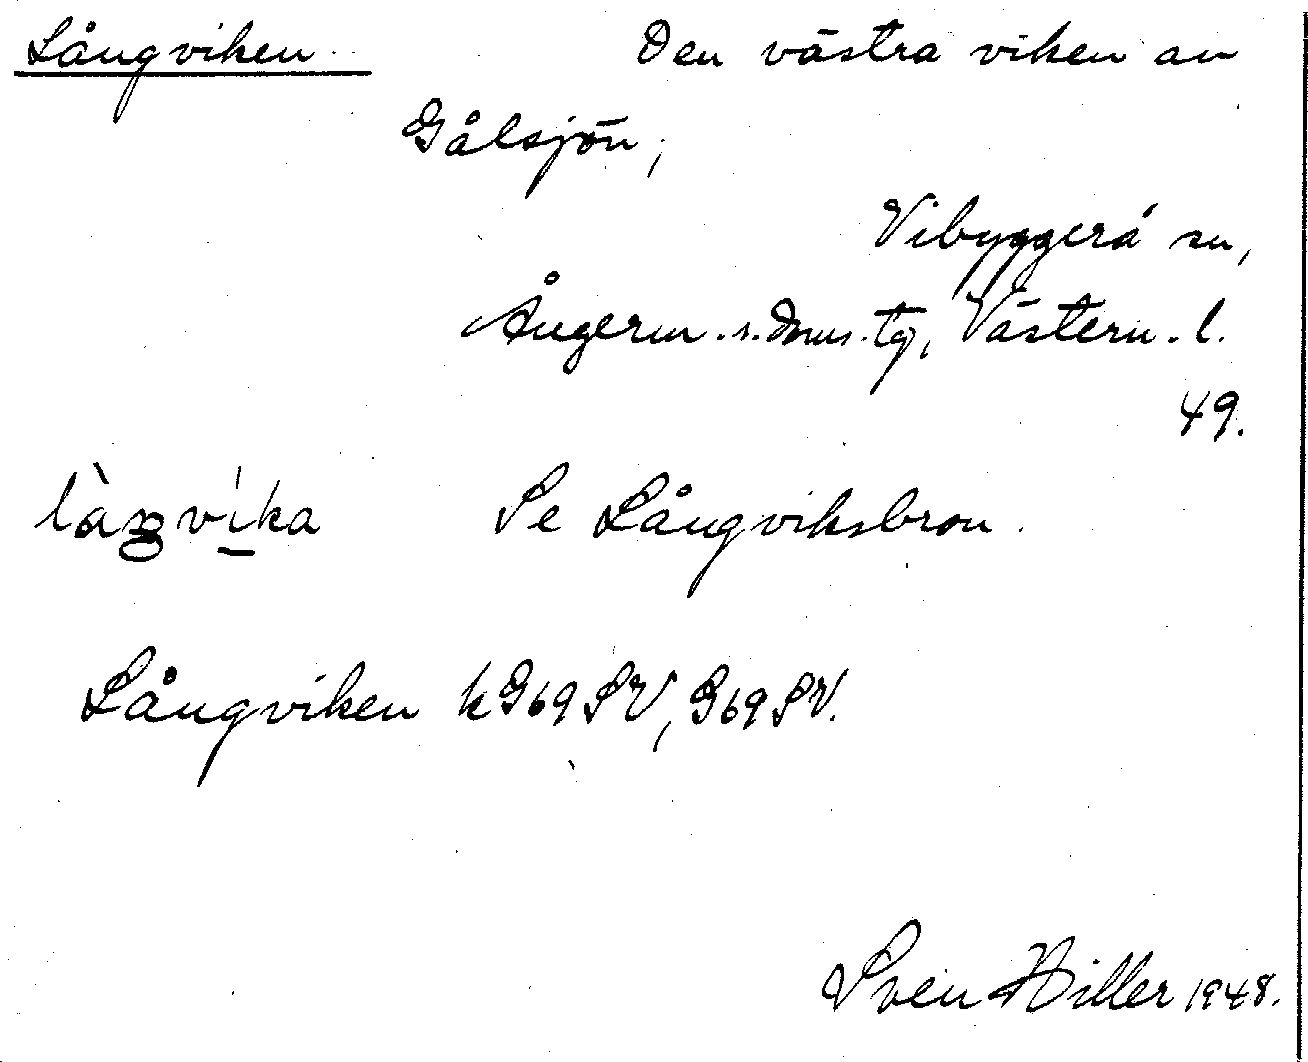 Långviken   Den västra viken av
Gålsjön,
Vibyggerå sn,
Ångerm. s. dms. tg, Västern. l.
49.
Se Långviksbron.
Långviken k G69SV, G69SV.
Sven Hiller 1948.